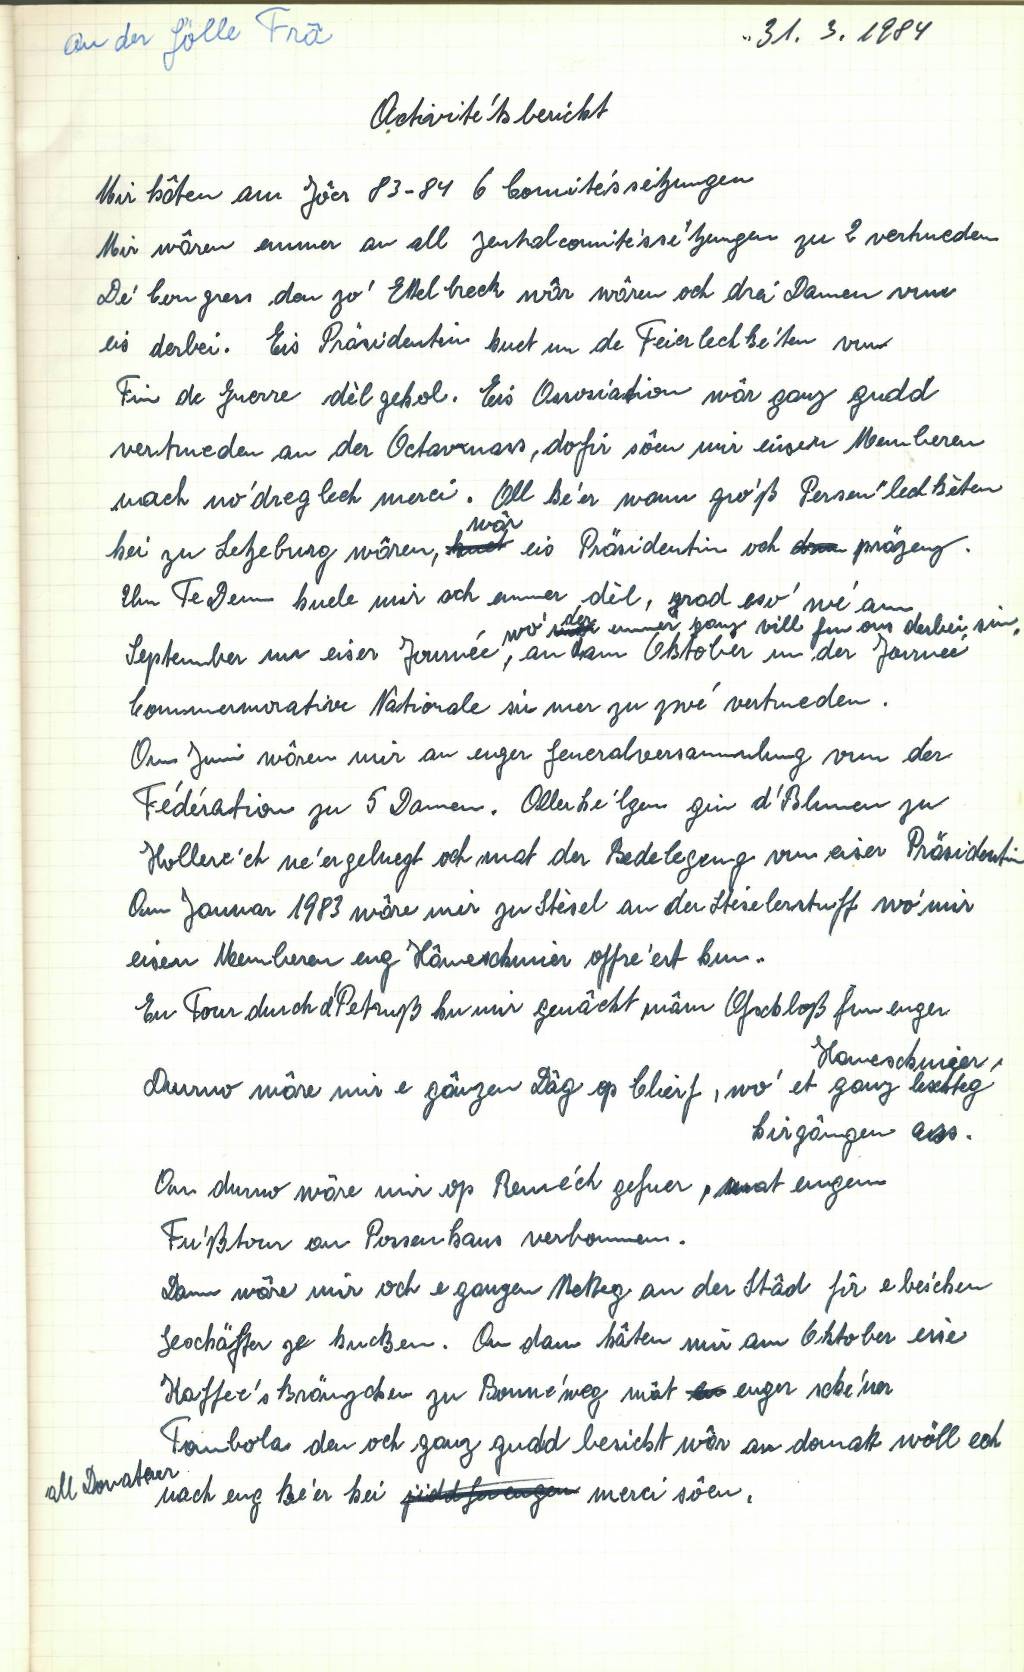 an der Gölle Frã
31. 3. 1984
Activite'tsbericht
Mir hâten am Jôer 83-84 6 Comite'ssetzungen
Mir wâren emmer an all Zentralcomite'sse'tzungen zu 2 vertrueden
De' Congress den zo' Ettelbreck wâr wâren och drei Damen vun
eis derbei. Eis Präsidentin huet un de Feierlechke'ten vun
Fin de Guerre dèlgehol. Eis Assosiation wâr ganz gudd
vertrueden an der Octavmass, dofir sôen mir eisen Memberen
nach no'dreglech merci. All ke'er wann gro'ß Perse'nlechkèten
hei zu Letzeburg wâren, wâr eis Präsidentin och präzenz.
Um Te Deum huele mir och emmer dèl, grad eso' we' am
September un eiser Journée, wo' der emmer ganz vill fun ons derbei sin,
an am Oktober un der Journée
Commemorative Nationale si mer zu zwé vertrueden.
Am Juni wâren mir an enger Generalversammlung vun der
Fédération zu 5 Damen. Allerhe'lgen gin d'Blumen zu
Hollere'ch ne'ergeluegt och mat der Bedelegung vun eiser Präsidentin
Am Januar 1983 wâre mir zu Stèsel an der Stèselerstuff wo' mir
eisen Memberen eng Hâmeschmier offre'ert hun.
En Tour durch d'Petruß hu mir gemâcht, mâm Ofschloß fun enger
Hameschmier,
Durno wâre mir e gânzen Dâg op Clierf, wo' et ganz leschteg
hirgângen ass.
An durno wâre mir op Reme'ch gefuer, mat engem
Fu'ßtour an Possenhaus verbonnen.
Dann wâre mir och e ganzen Metteg an der Stâd fir e bes'chen
Geschäfter ze kucken. An dann hâten mir am Oktober eise
Kaffee'skränzchen zu Bonne'weg mat enger sche'ner
Tombola den och ganz gudd besicht wâr an domatt wöll ech
all Donateuer nach eng ke'er hei merci sôen.